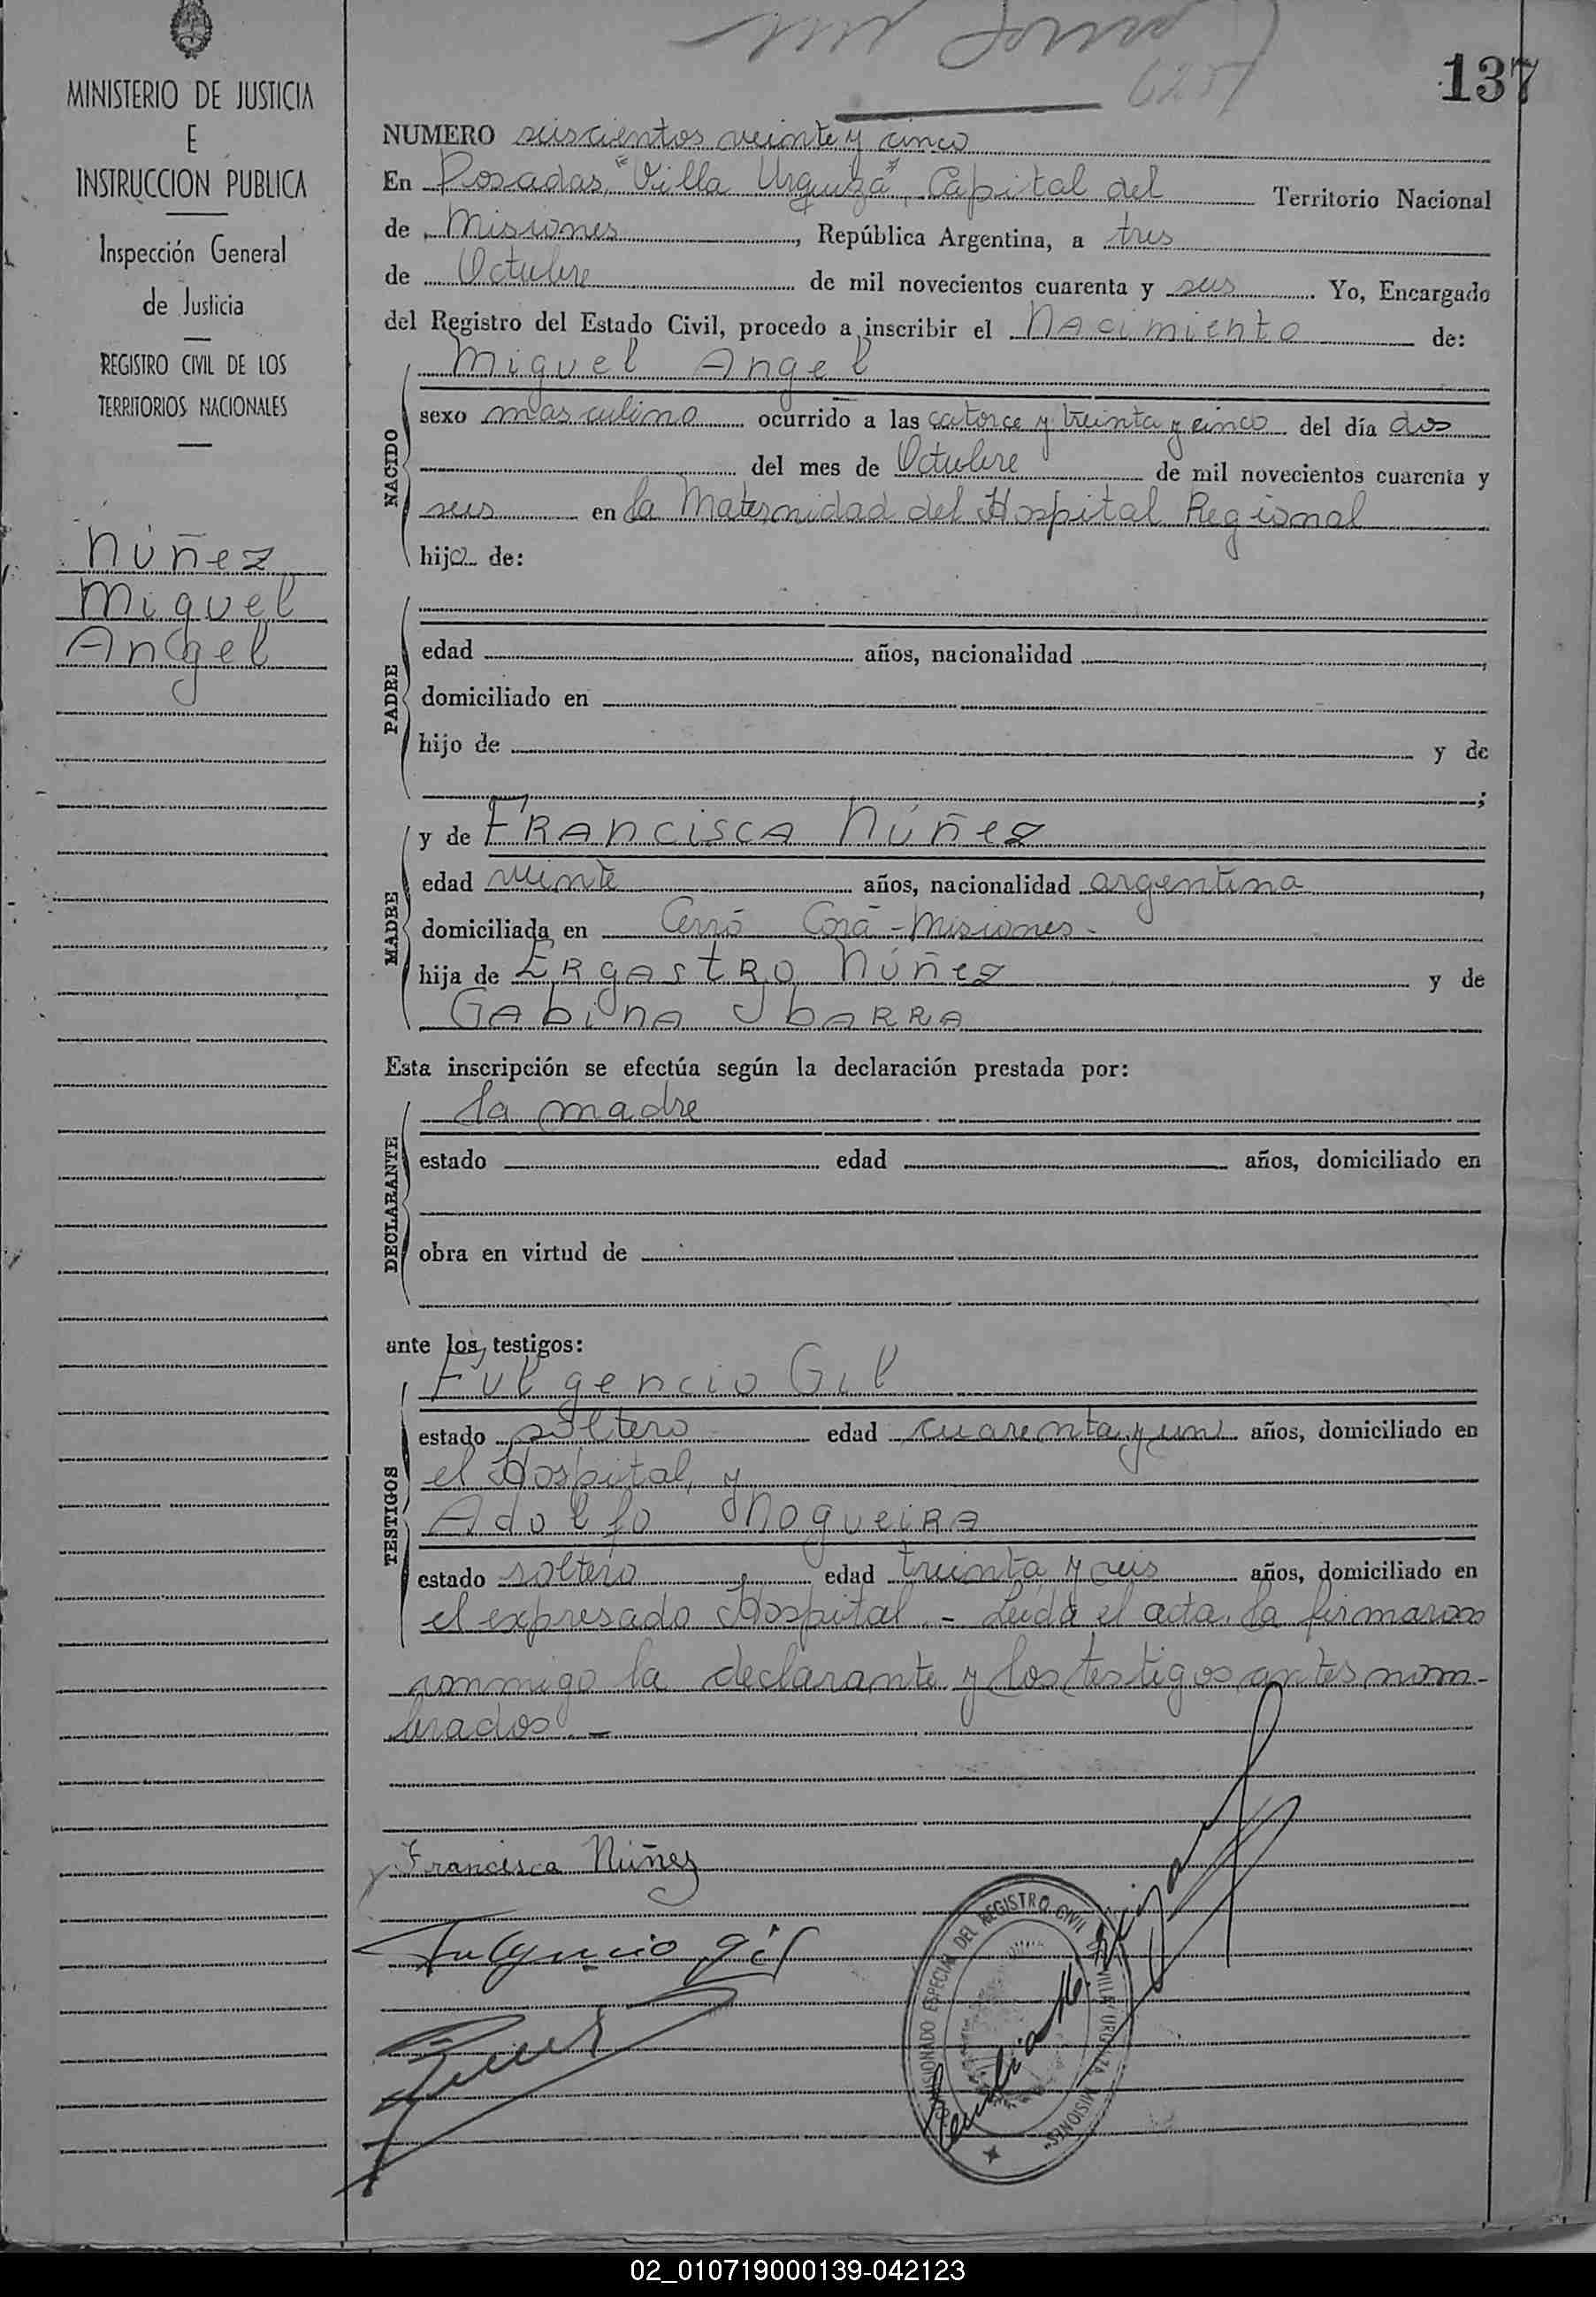 137
MINISTERIO DE JUSTICIA
E
INSTRUCCION PUBLICA
Inspección General
de Justicia
REGISTRO CIVIL DE LOS
TERRITORIOS NACIONALES
Núñez
Miguel
Angel
625
NUMERO seiscientos veinte y cinco
En Posadas, "Villa Urquiza", Capital del Territorio Nacional
de Misiones, República Argentina, a tres
de Octubre de mil novecientos cuarenta y seis. Yo, Encargado
del Registro del Estado Civil, procedo a inscribir el Nacimiento de:
NACIDO
Miguel Angel
sexo masculino ocurrido a las catorce y treinta y cinco del día dos
del mes de Octubre de mil novecientos cuarenta y
seis en la Maternidad del Hospital Regional
hijo de:
PADRE
edad años, nacionalidad ,
domiciliado en
hijo de y de
;
MADRE
y de Francisca Núñez
edad veinte años, nacionalidad argentina,
domiciliada en Cerró Corá - Misiones -
hija de Ergastro Núñez y de
Gabina Ybarra
Esta inscripción se efectúa según la declaración prestada por:
DECLARANTE
la madre
estado edad años, domiciliado en
obra en virtud de
ante los testigos:
TESTIGOS
Fulgencio Gil
estado soltero edad cuarenta y un años, domiciliado en
el Hospital, y
Adolfo Nogueira
estado soltero edad treinta y seis años, domiciliado en
el expresado Hospital. - Leida el acta, la firmaron
conmigo la declarante y los testigos antes nom-
brados. -
Francisca Núñez
Fulgencio Gil
COMISIONADO ESPECIAL DEL REGISTRO CIVIL DE VILLA URQUIZA MISIONES
02_010719000139-042123